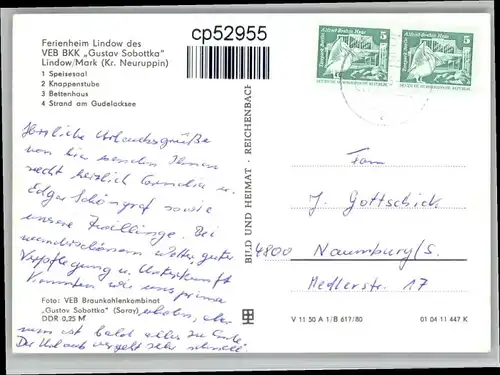 cp52955
Ferienheim Lindow des
VEB BKK „Gustav Sobottka"
Lindow/Mark (Kr. Neuruppin)
1 Speisesaal
2 Knappenstube
3 Bettenhaus
4 Strand am Gudelacksee
Herzliche Urlaubsgrüße
von hier senden Ihnen
recht herzlich Cornelia u.
Edgar Schöngraf sowie
unsere Zwillinge. Bei
wunderschönem Wetter, guter
Verpflegung u. Unterkunft
konnten wir uns prima
Foto: VEB Braunkohlenkombinat
„Gustav Sobottka" (Soray) erholen, aber
DDR 0,25 M
nun ist bald alles zu Ende.
Der Urlaub vergeht sehr schnell.
BILD UND HEIMAT · REICHENBACH
5
5
Fam
J. Gottschick
4800 Naumburg/S.
Medlerstr. 17
V 11 50 A 1/B 617/80
01 04 11 447 K